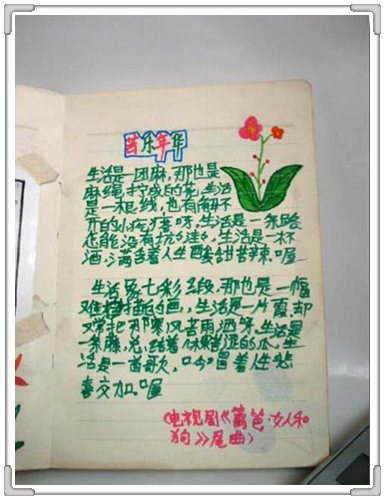 音乐年华
生活是一团麻,那也是
麻绳拧成的花,生活
是一根线,也有解不
开的小疙瘩呀,生活是一条路
怎能没有坑〃洼〃,生活是一杯
酒,满含着人生酸甜苦辣,喔
生活象七彩缎,那也是一幅
难描的画,生活是一片霞,却
又常把那寒风苦雨洒呀,生活是
一条藤,总结着苦涩的瓜,生
活是一首歌,吟着人生悲
喜交加,喔
(电视剧《篱笆·女人和
狗》尾曲)